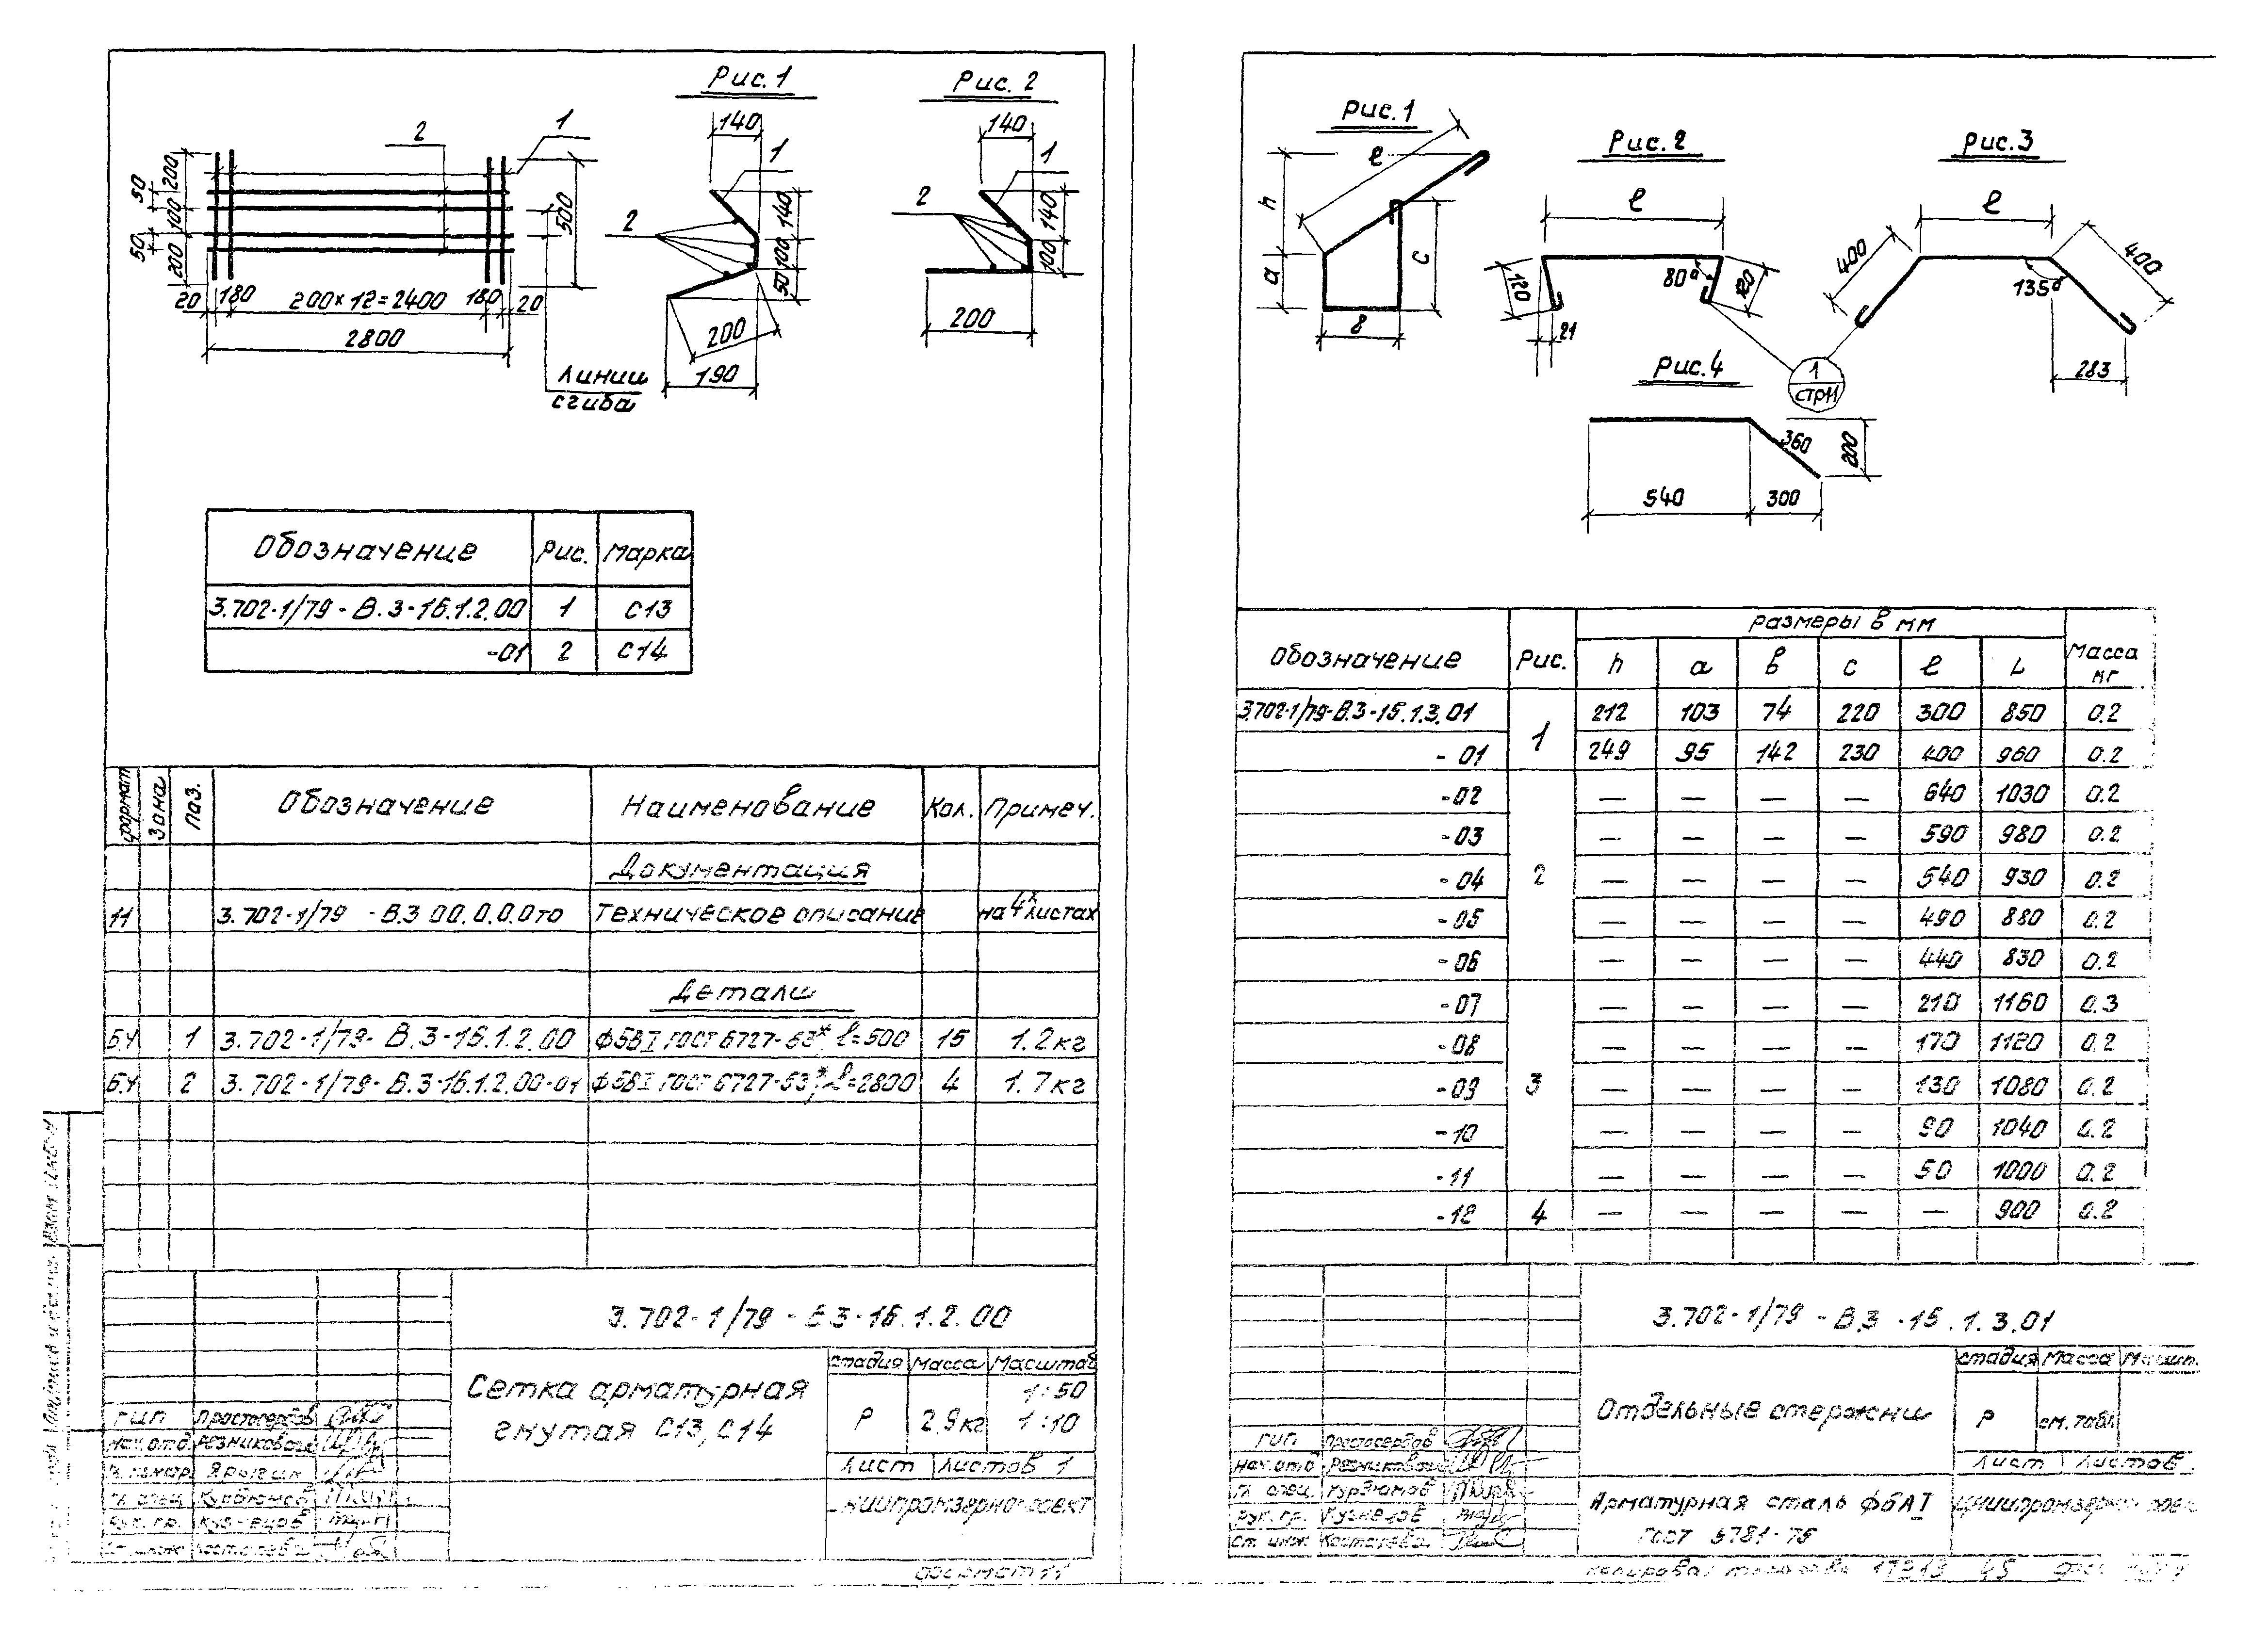 Рис.1
Рис. 2
2
1
140
1
140
1
50
200
100
50
200
500
2
140
100
50
2
140
100
20
180
200×12=2400
180
20
2800
200
190
200
линии
сгиба
Обозначение Рис. Марка
3.702-1/79-В.3-16.1.2.00 1 С13
-01 2 С14
формат Зона Поз. Обозначение Наименование Кол. Примеч.
Документация
11 3.702-1/79 -В.3 00.0.0.0то Техническое описание на 4х листах
Детали
БЧ 1 3.702-1/79-В.3-16.1.2.00 Ф5ВI ГОСТ 6727-53*, ℓ=500 15 1.2кг
БЧ 2 3.702-1/79-В.3-16.1.2.00-01 Ф5ВI ГОСТ 6727-53*, ℓ=2800 4 1.7кг
3.702-1/79-В3-16.1.2.00
Сетка арматурная
гнутая С13, С14
стадия Масса Масштаб
Р 2.9кг 1:50
1:10
Лист Листов 1
гип Простосердов
Нач.отд Резников
Ярыгин
Гл. спец. Курдюмов
Рук. гр. Кузнецов
Ст. инж.
формат 11
Рис.1
Рис.2
Рис.3
h
ℓ
a
c
в
ℓ
120
80°
120
21
ℓ
400
400
135°
283
1
стр11
Рис.4
360
200
540
300
Обозначение Рис. Размеры в мм Масса кг
h а в с ℓ L
3.702-1/79-В.3-15.1.3.01 1 212 103 74 220 300 850 0.2
-01 249 95 142 230 400 960 0.2
-02 2 — — — — 640 1030 0.2
-03 — — — — 590 980 0.2
-04 — — — — 540 930 0.2
-05 — — — — 490 880 0.2
-06 — — — — 440 830 0.2
-07 3 — — — — 210 1160 0.3
-08 — — — — 170 1120 0.2
-09 — — — — 130 1080 0.2
-10 — — — — 90 1040 0.2
-11 — — — — 50 1000 0.2
-12 4 — — — — — 900 0.2
3.702-1/79-В.3-15.1.3.01
Отдельные стержни
стадия Масса
Р см. табл
Лист Листов
Арматурная сталь Ф6АI
ГОСТ 5781-75
гип Простосердов
Нач.отд Резников
Гл. спец. Курдюмов
Рук. гр. Кузнецов
Ст. инж.